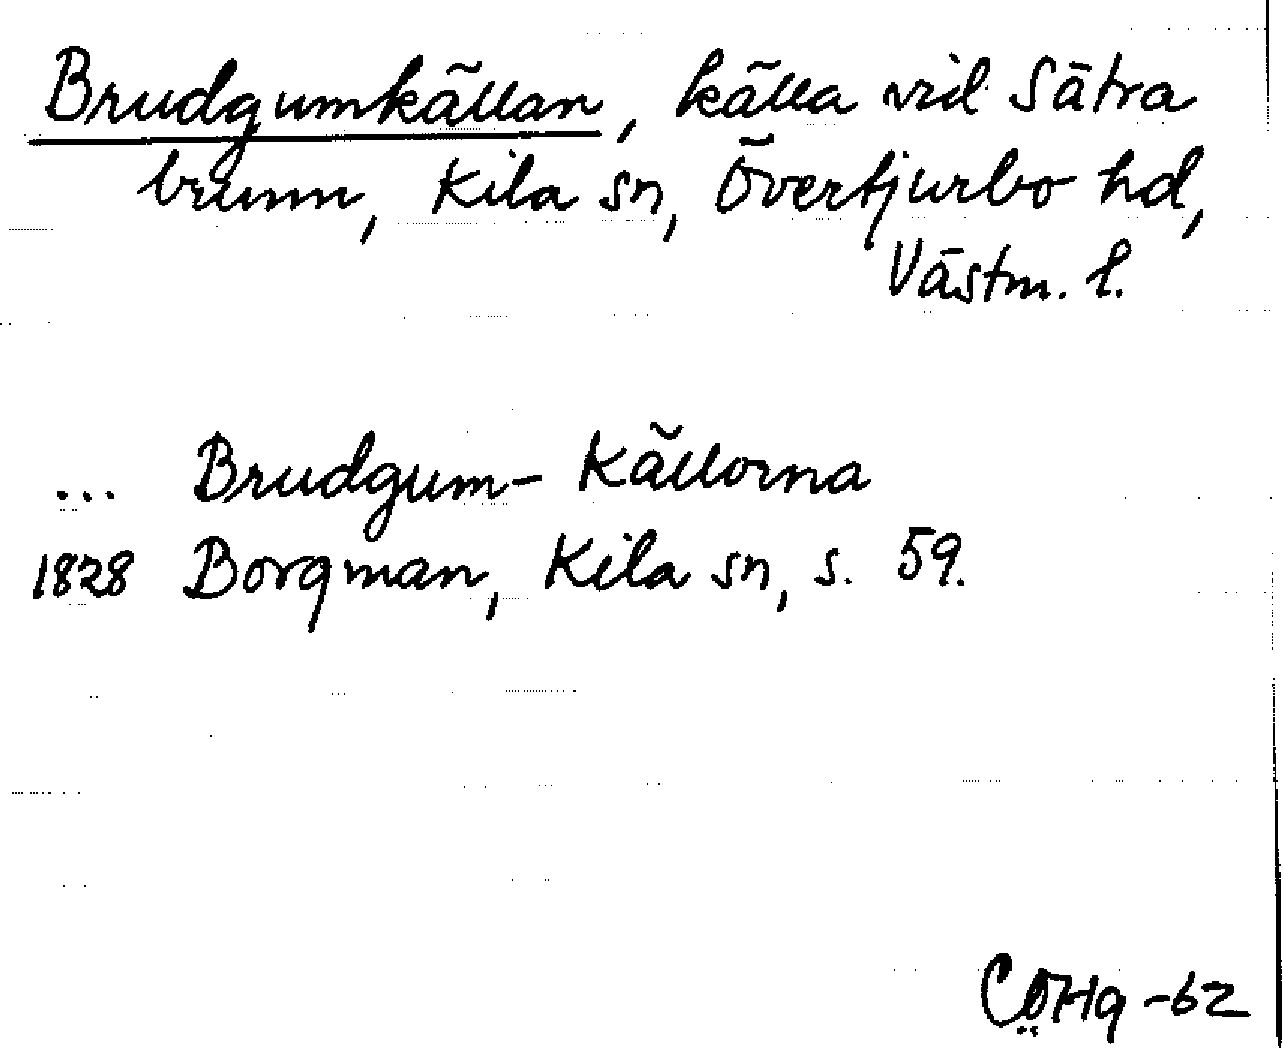 Brudgumkällan, källa vid Sätra
brunn, Kila sn, Övertjurbo hd,
Västm. l.
... Brudgum-Källorna
1828 Borgman, Kila sn, s. 59.
CÖHg -62